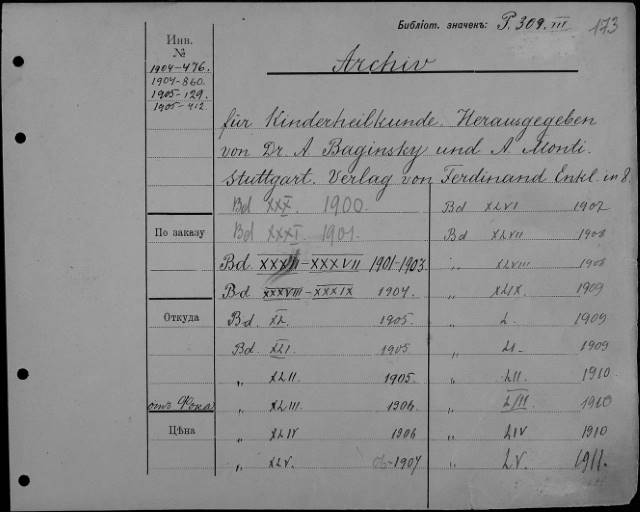 Библіот. значенъ: P. 309. III 173
Инв.
№
1904-476.
1904-860.
1905-129.
1905-412.
Archiv
für Kinderheilkunde. Herausgegeben
von Dr. A Baginsky und A Monti.
Stuttgart. Verlag von Ferdinand Enke. in 8.
Bd XXX. 1900.
Bd XXXI. 1901.
Bd XXXII-XXXVII 1901-1903.
Bd XXXVIII-XXXIX 1904.
Bd. XL. 1905.
Bd. XLI. 1905
„ XLII. 1905.
„ XLIII. 1906.
„ XLIV 1906
„ XLV. 06-1907
Bd XLVI 1907
Bd XLVII 1908
„ XLVIII 1908
„ XLIX. 1909
„ L. 1909
„ LI. 1909
„ LII. 1910
„ LIII. 1910
„ LIV 1910
„ LV. 1911.
По заказу
Откуда
отъ Фока
Цѣна